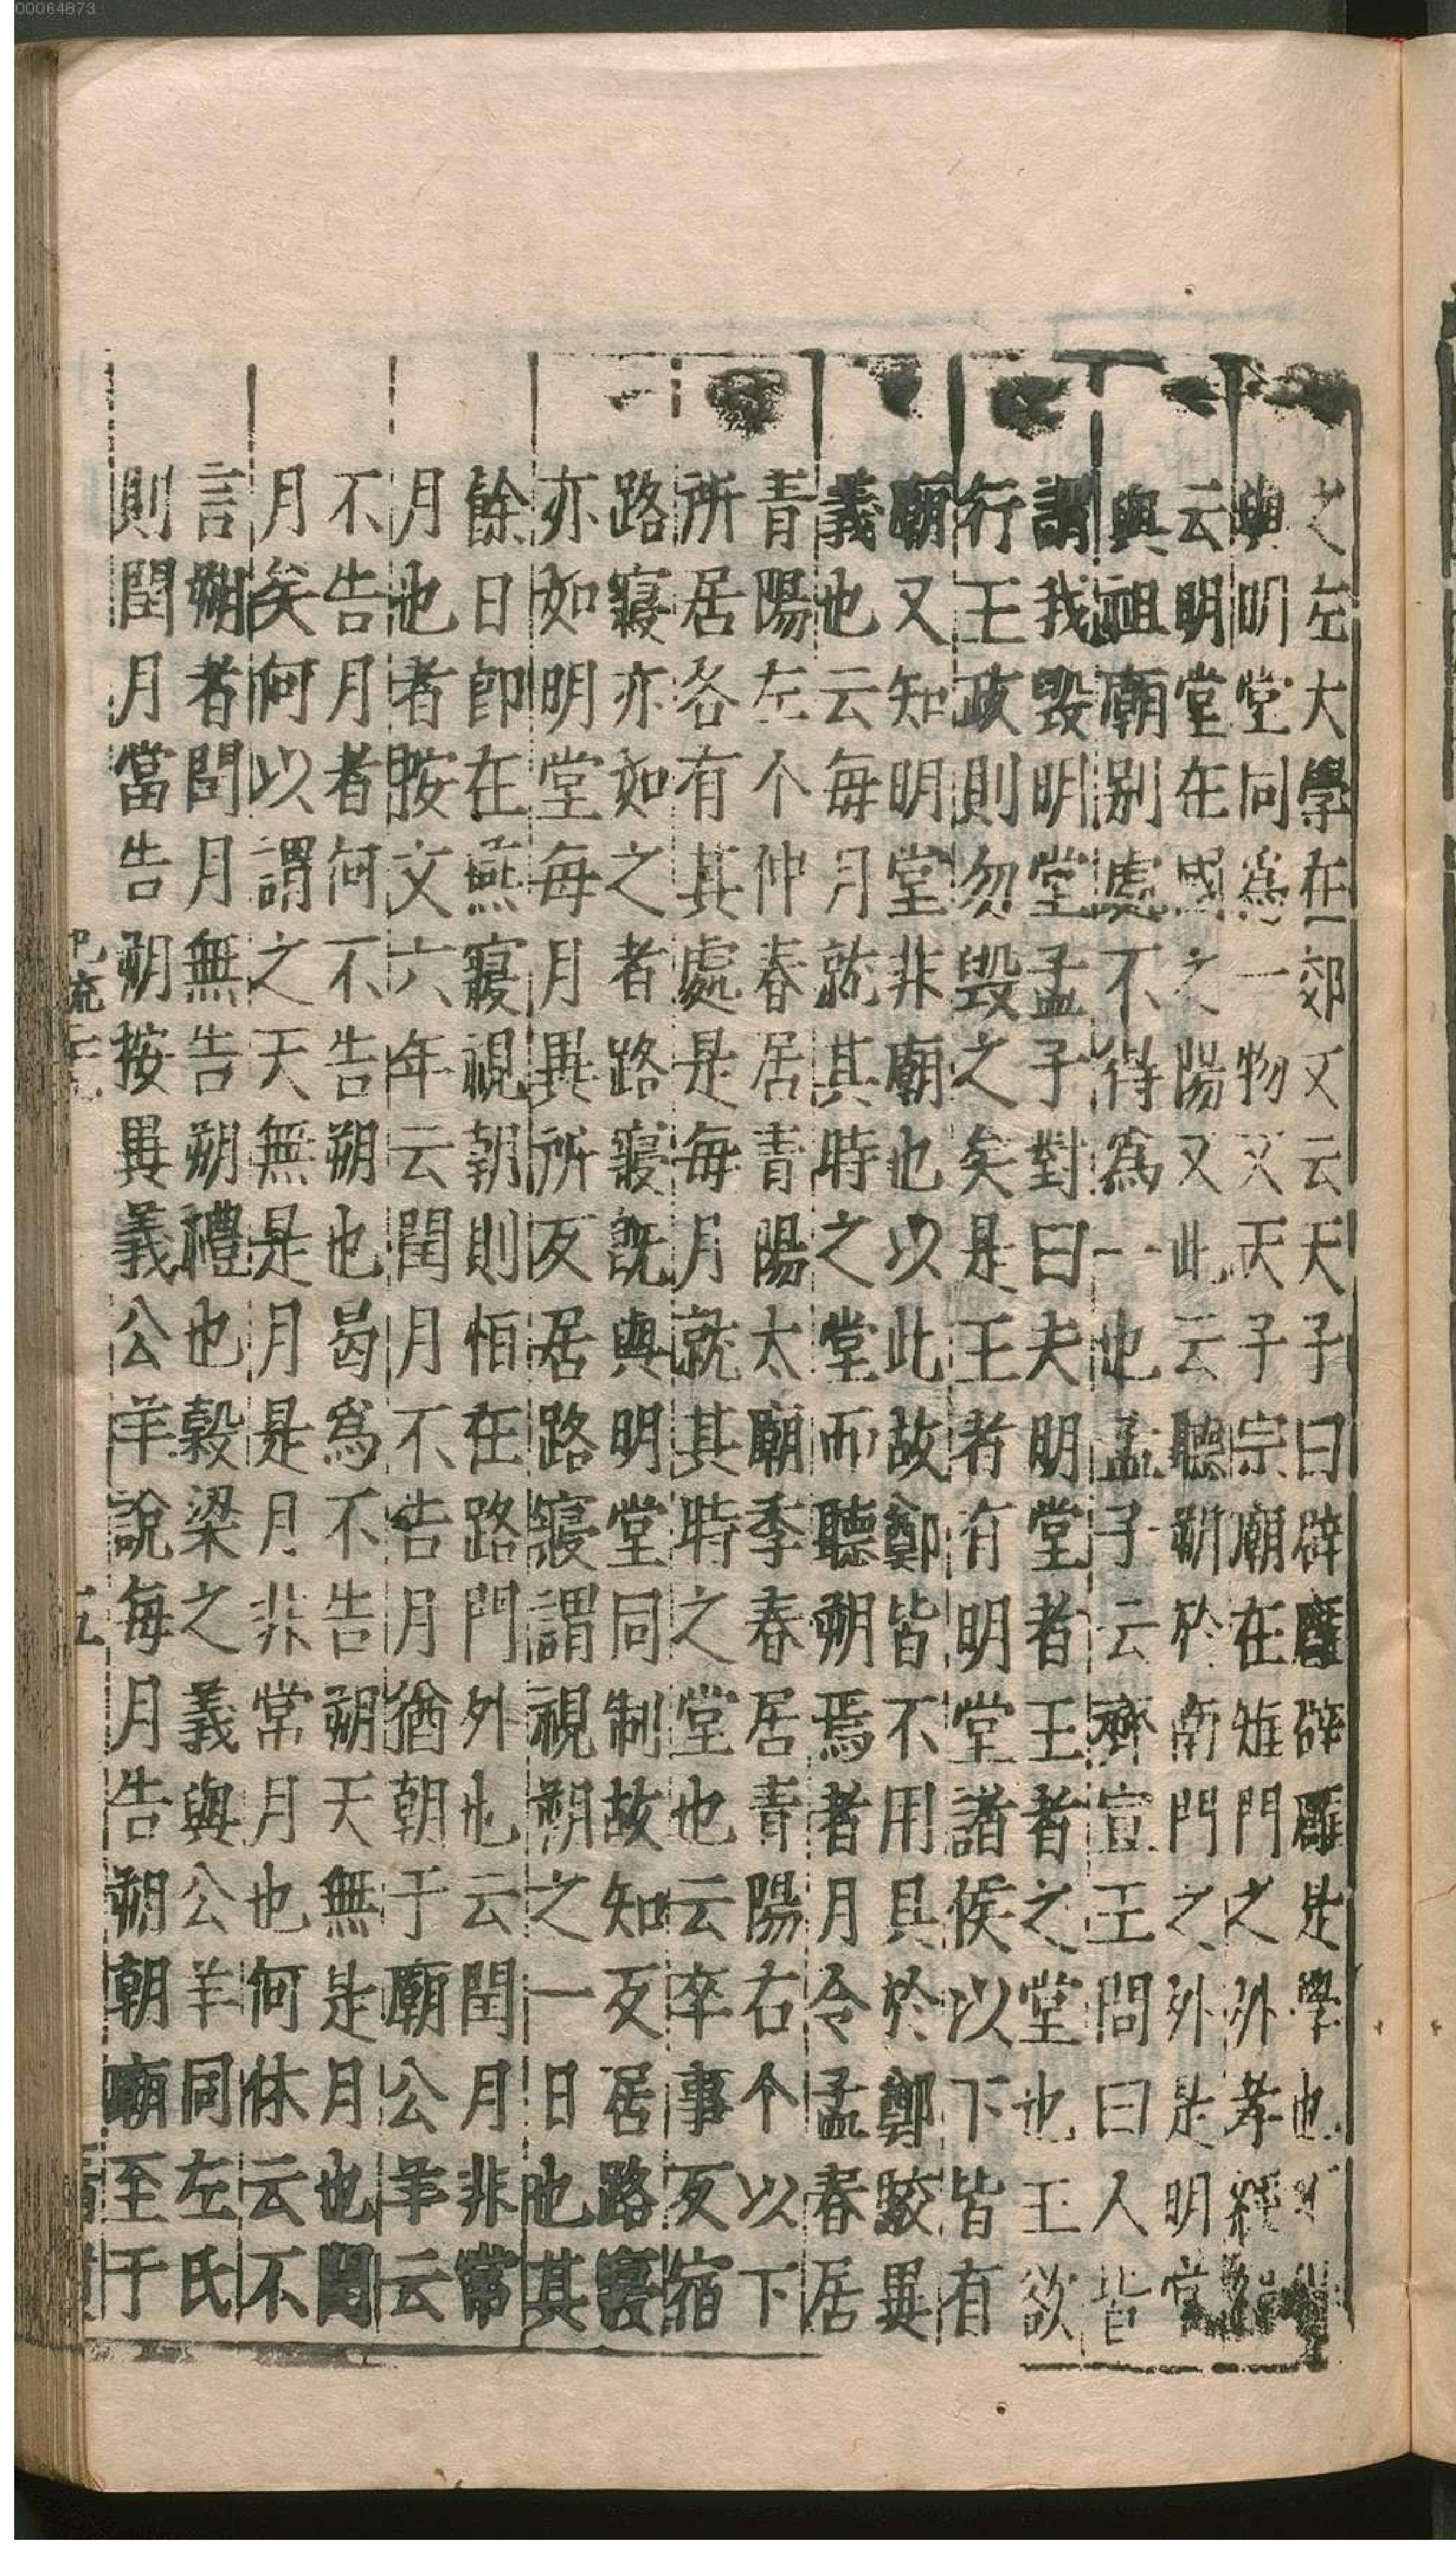 00064873
之左大學在郊又云天子曰辟廱辟廱是學也不得
與明堂同爲一物又天子宗廟在雉門之外孝經緯
云明堂在國之陽又此云聽朔於南門之外是明堂
與祖廟别處不得爲一也孟子云齊宣王問曰人皆
謂我毀明堂孟子對曰夫明堂者王者之堂也王欲
行王政則勿毀之矣是王者有明堂諸侯以下皆有
廟又知明堂非廟也以此故鄭皆不用具於鄭駮異
義也云每月就其時之堂而聽朔焉者月令孟春居
青陽左个仲春居青陽太廟季春居青陽右个以下
所居各有其處是每月就其時之堂也云卒事反宿
路寢亦如之者路寢旣與明堂同制故知反居路寢
亦如明堂每月異所反居路寢謂視朔之一日也其
餘日卽在燕寢視朝則恒在路門外也云閏月非常
月也者按文六年云閏月不告月猶朝于廟公羊云
不告月者何不告朔也曷爲不告朔天無是月也閏
月矣何以謂之天無是月是月非常月也何休云不
言朔者閏月無告朔禮也穀梁之義與公羊同左氏
則閏月當告朔按異義公羊說每月告朔朝廟至于
五